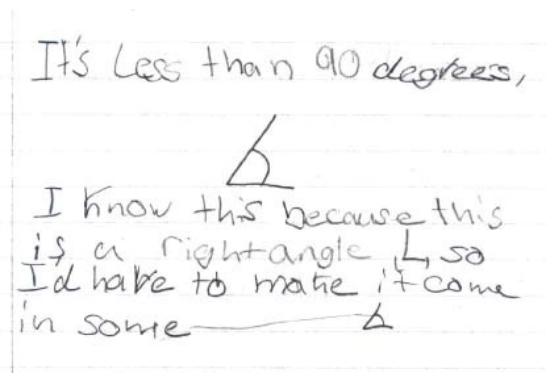 It's Less than 90 degrees,
I know this because this
is a right angle, so
I'd have to make it come
in some